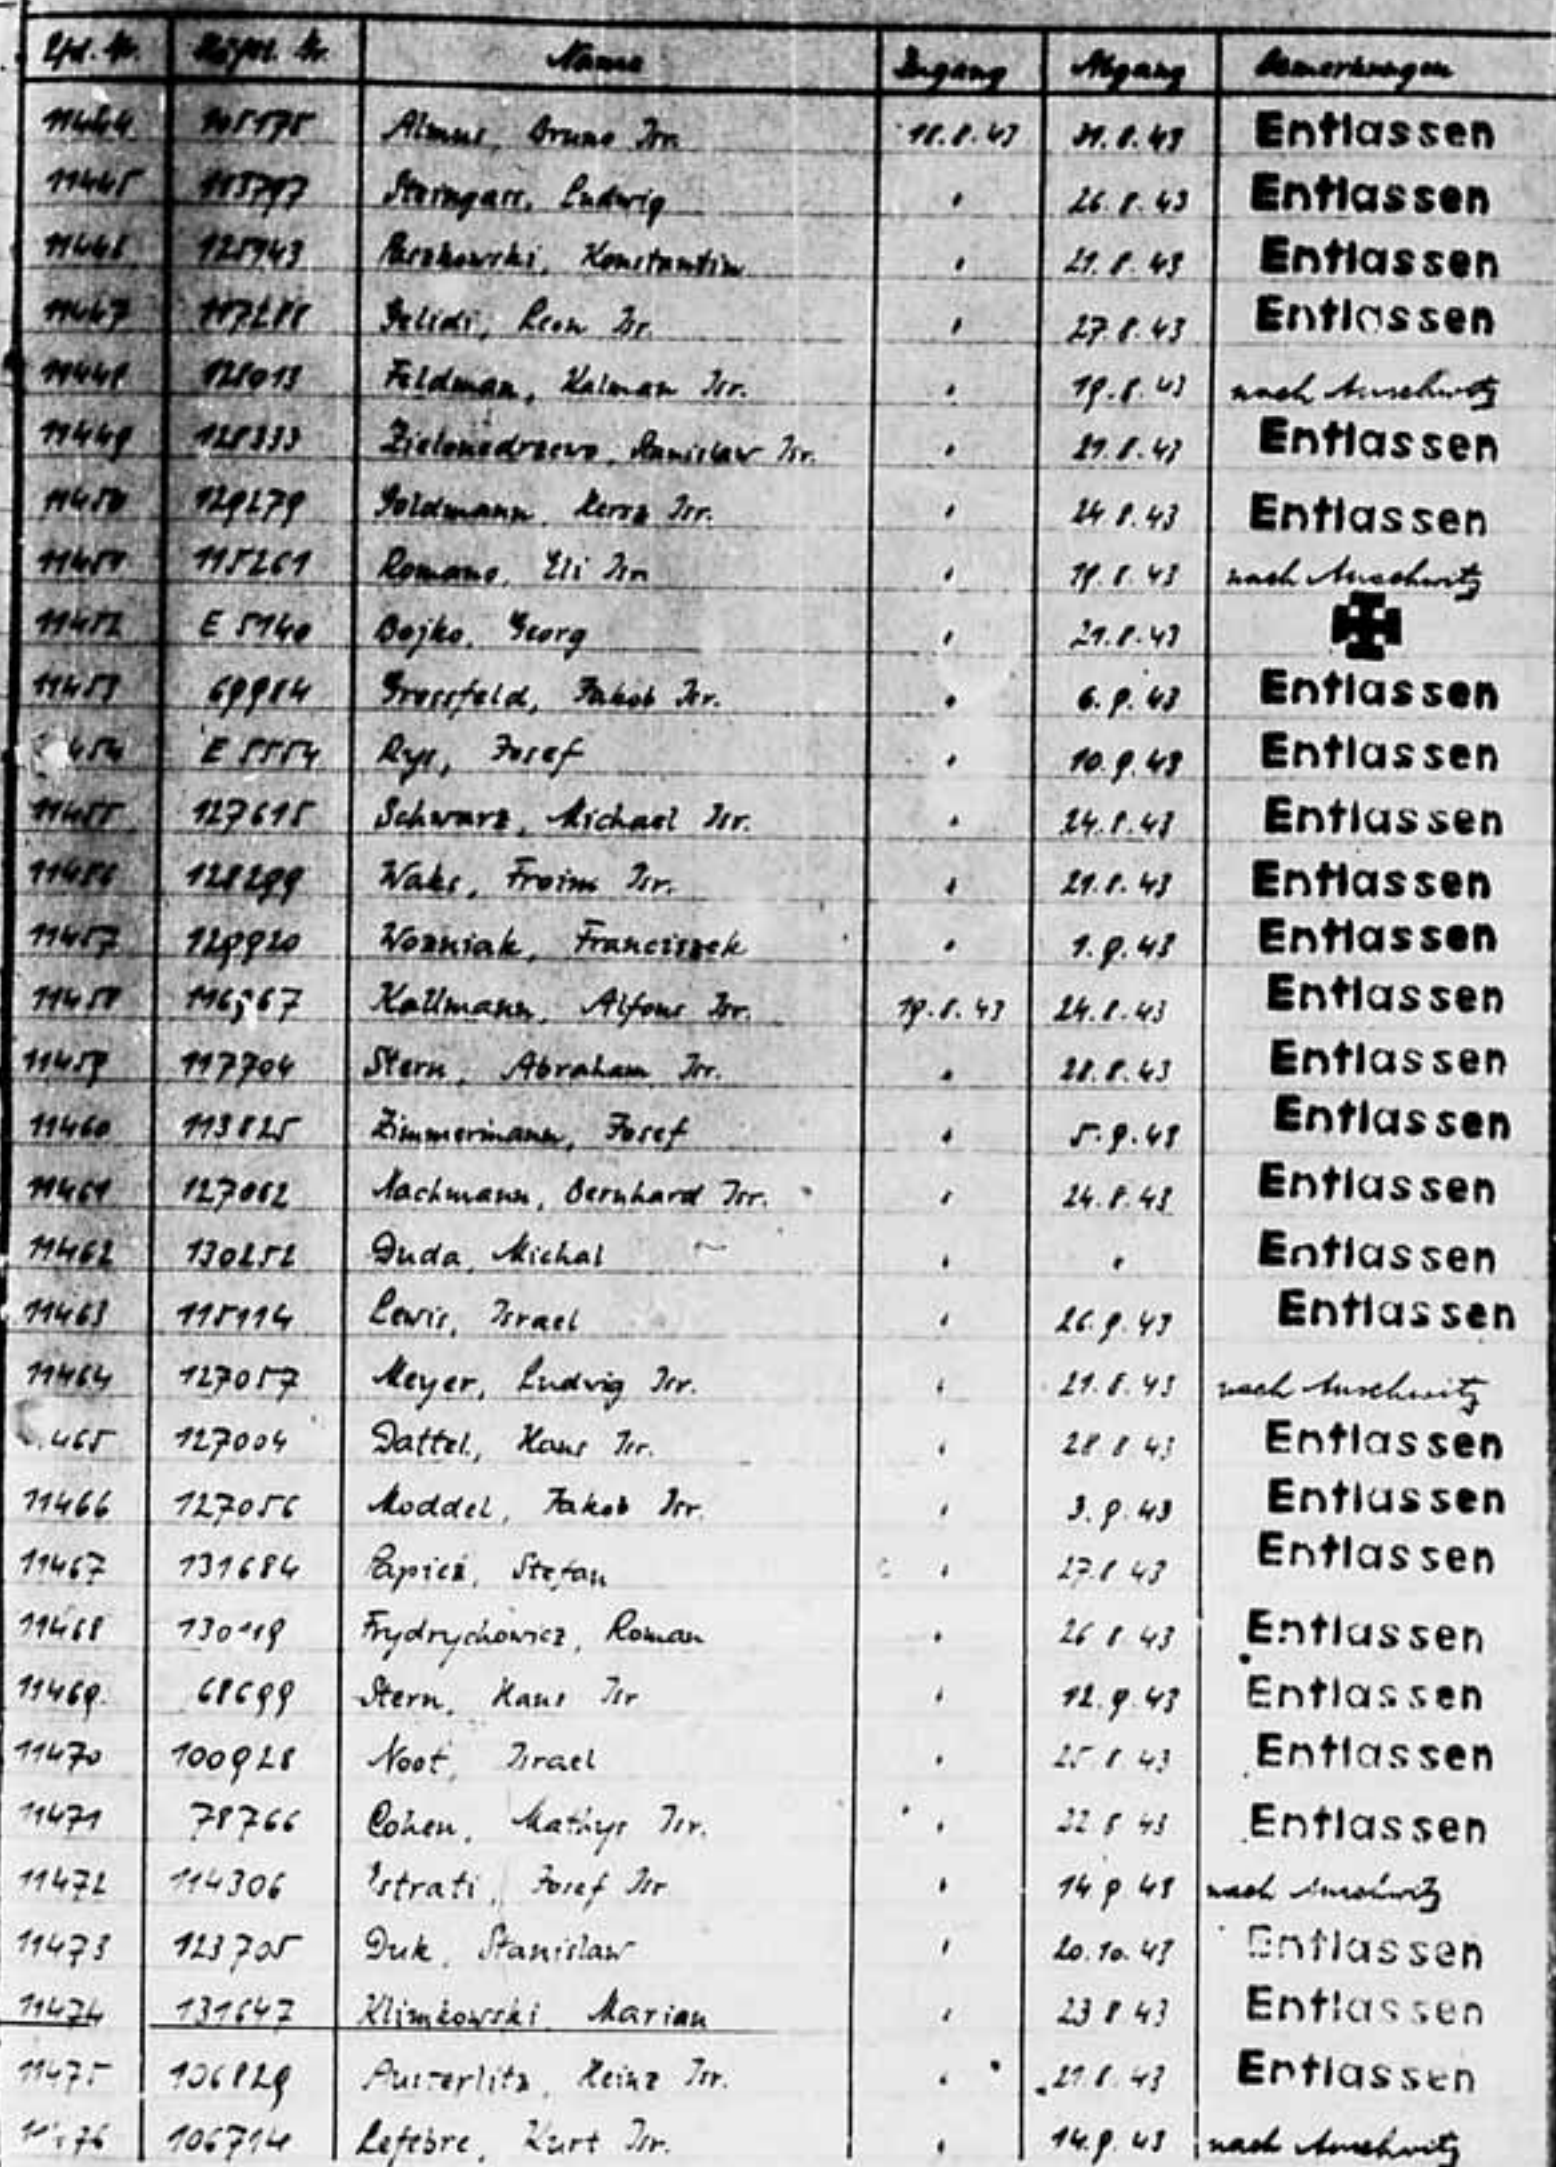 Lfd. Nr. Häftl. Nr. Name Zugang Abgang Bemerkungen
11444 105175 Bruno Isr. 18.8.43 21.8.43 Entlassen
11445 Ludwig " 26.8.43 Entlassen
11446 125943 Konstantin " 21.8.43 Entlassen
11447 117288 Leon Isr. " 27.8.43 Entlassen
11448 128013 Feldman, Kalman Isr. " 19.8.43 nach Auschwitz
11449 128333 Zielonedrzewo, Stanislaw Isr. " 21.8.43 Entlassen
11450 129279 Goldmann, Hersz Isr. " 24.8.43 Entlassen
11451 115261 Romano, Eli Isr. " 19.8.43 nach Auschwitz
11452 E 5140 Bojko, Georg " 21.8.43
11453 69984 Grossfeld, Jakob Isr. " 6.9.43 Entlassen
454 E 5554 Rys, Josef " 10.9.43 Entlassen
11455 127615 Schwarz, Michael Isr. " 24.8.43 Entlassen
11456 128299 Waks, Froim Isr. " 21.8.43 Entlassen
11457 129920 Wozniak, Franciszek " 1.9.43 Entlassen
11458 Kallmann, Alfons Isr. 19.8.43 24.8.43 Entlassen
11459 117704 Stern, Abraham Isr. " 28.8.43 Entlassen
11460 113825 Zimmermann, Josef " 5.9.43 Entlassen
11461 127062 Nachmann, Bernhard Isr. " 24.8.43 Entlassen
11462 130252 Duda, Michal " " Entlassen
11463 115114 Lewis, Israel " 26.9.43 Entlassen
11464 127057 Meyer, Ludwig Isr. " 21.8.43 nach Auschwitz
465 127004 Dattel, Hans Isr. " 28.8.43 Entlassen
11466 127056 Moddel, Jakob Isr. " 3.9.43 Entlassen
11467 131684 Papiez, Stefan " 27.8.43 Entlassen
11468 130119 Frydrychowicz, Roman " 26.8.43 Entlassen
11469 68699 Stern, Hans Isr " 12.9.43 Entlassen
11470 100928 Noot, Israel " 25.8.43 Entlassen
11471 78766 Cohen, Mathys Isr. " 22.8.43 Entlassen
11472 114306 Josef Isr " 14.9.43 nach Auschwitz
11473 123705 Duk, Stanislaw " 20.10.43 Entlassen
11474 131647 Klimkowski, Marian " 23.8.43 Entlassen
11475 106829 Austerlitz, Heinz Isr. " 21.8.43 Entlassen
106714 Lefebre, Kurt Isr. " 14.9.43 nach Auschwitz